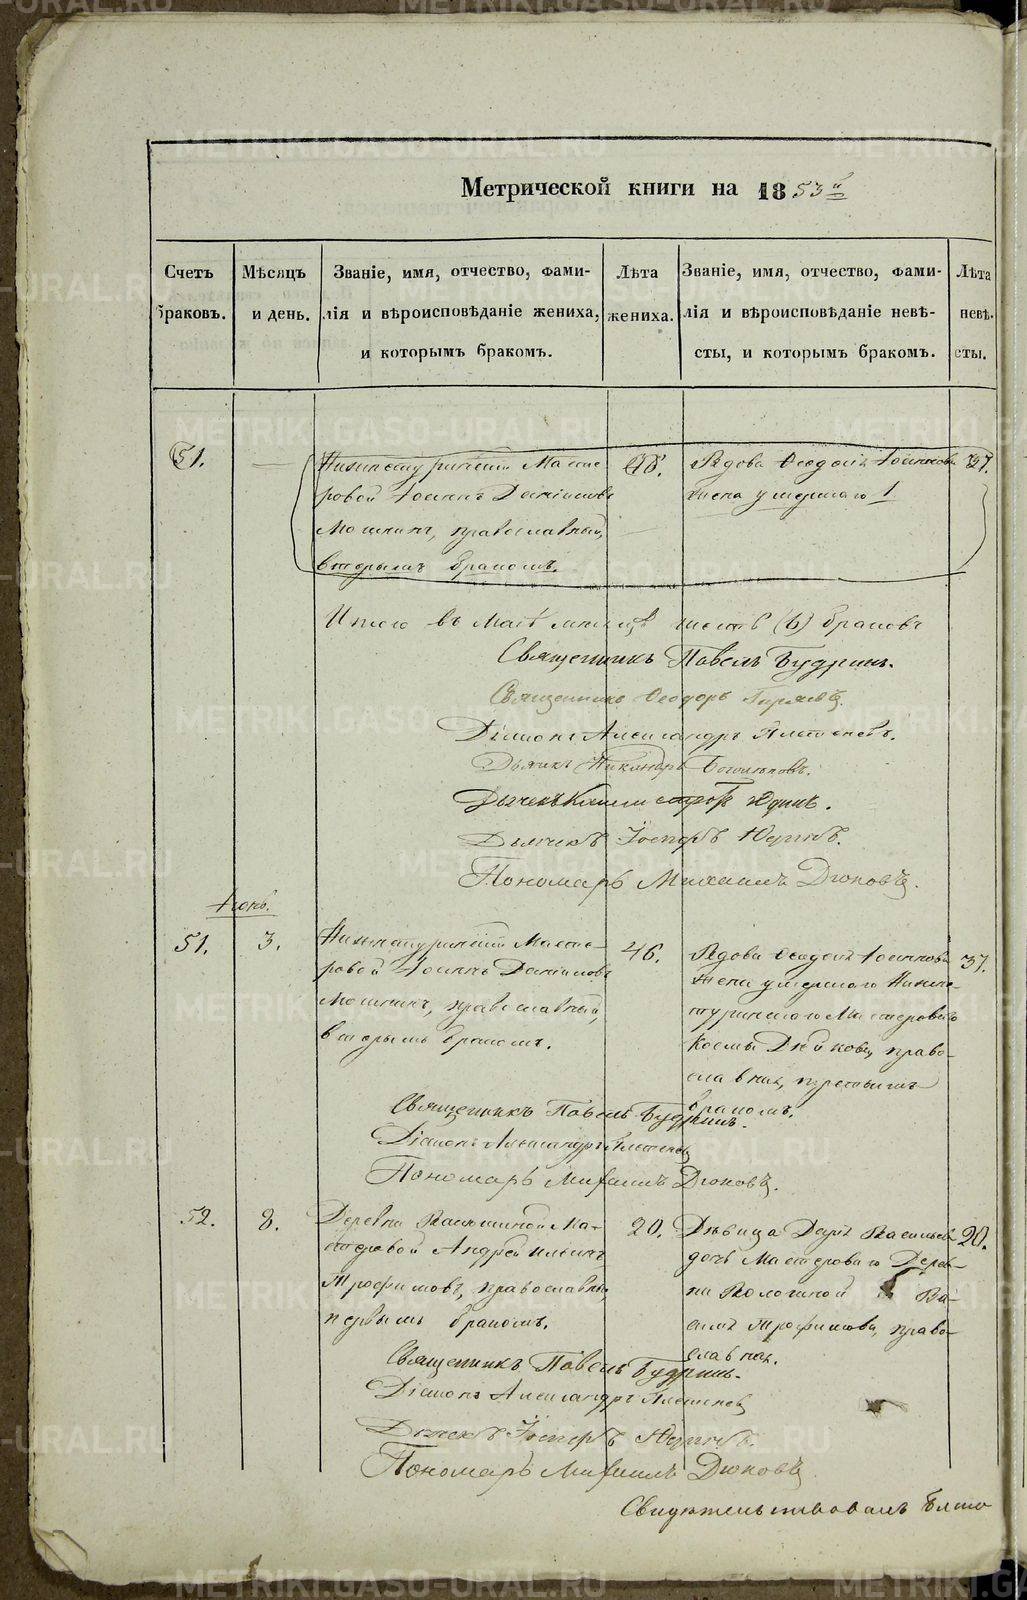 Метрической книги на 1853й
Счетъ браковъ.
Мѣсяцъ и день.
Званіе, имя, отчество, фами-
лія и вѣроисповѣданіе жениха,
и которымъ бракомъ.
Лѣта жениха.
Званіе, имя, отчество, фами-
лія и вѣроисповѣданіе невѣ-
сты, и которымъ бракомъ.
Лѣта невѣ-
сты.
51.
Нижнетуринскій Масте-
ровой Іоаннъ Даніиловъ
Мошкинъ, православный,
вторымъ бракомъ.
Вдова Ѳеодосія Іоаннова
жена умершаго
37.
Итого въ Маѣ месяцѣ шесть (6) браковъ
Священникъ Павелъ Будринъ.
Священникъ Ѳеодоръ
Діаконъ Александръ
Дьячикъ Никаноръ
Дьячекъ
Дьячикъ Іосифъ
Пономарь Михаилъ Дюковъ.
Іюнь.
51.
3.
Нижнетуринскій Масте-
ровой Іоаннъ Даніиловъ
Мошкинъ, православный,
вторымъ бракомъ.
46.
Вдова Ѳеодосія Іоаннова
жена умершаго Нижне-
туринскаго Мастероваго
Космы православная, первымъ
бракомъ.
37.
Священникъ Павелъ Будринъ.
Діаконъ Александръ
Пономарь Михаилъ Дюковъ.
52.
8.
Деревни Мас-
теровой Андрей Ильинъ
Трофимовъ, православный,
первымъ бракомъ.
20.
Дѣвица Дарья Васильева
дочь Мастероваго Дерев-
ни Ва-
силія Трофимова, право-
славная.
20.
Священникъ Павелъ Будринъ.
Діаконъ Александръ
Дьячекъ Іосифъ
Пономарь Михаилъ Дюковъ.
Свидѣтельствовалъ
METRIKI.GASO-URAL.RU